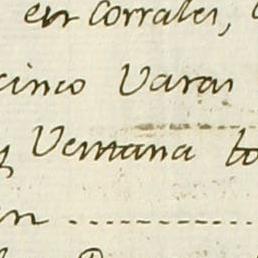 en Corrales,
cinco Varas
y Ventana
en